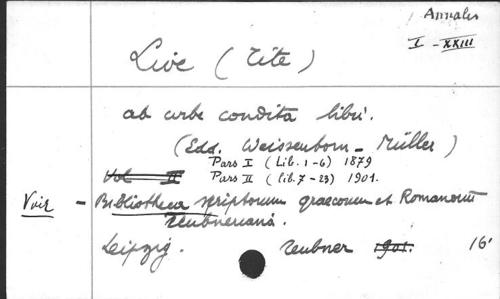 Annales
I - XXIII
Live (Tite)
ab urbe condita libri.
(Edd. Weissenborn - Müller)
Pars I (Lib. 1-6) 1879
Vol II Pars II (lib. 7-23) 1901.
Voir - Bibliotheca scriptorum graecorum et Romanorum
teubneriana.
Leipzig. Teubner 1901. 16°